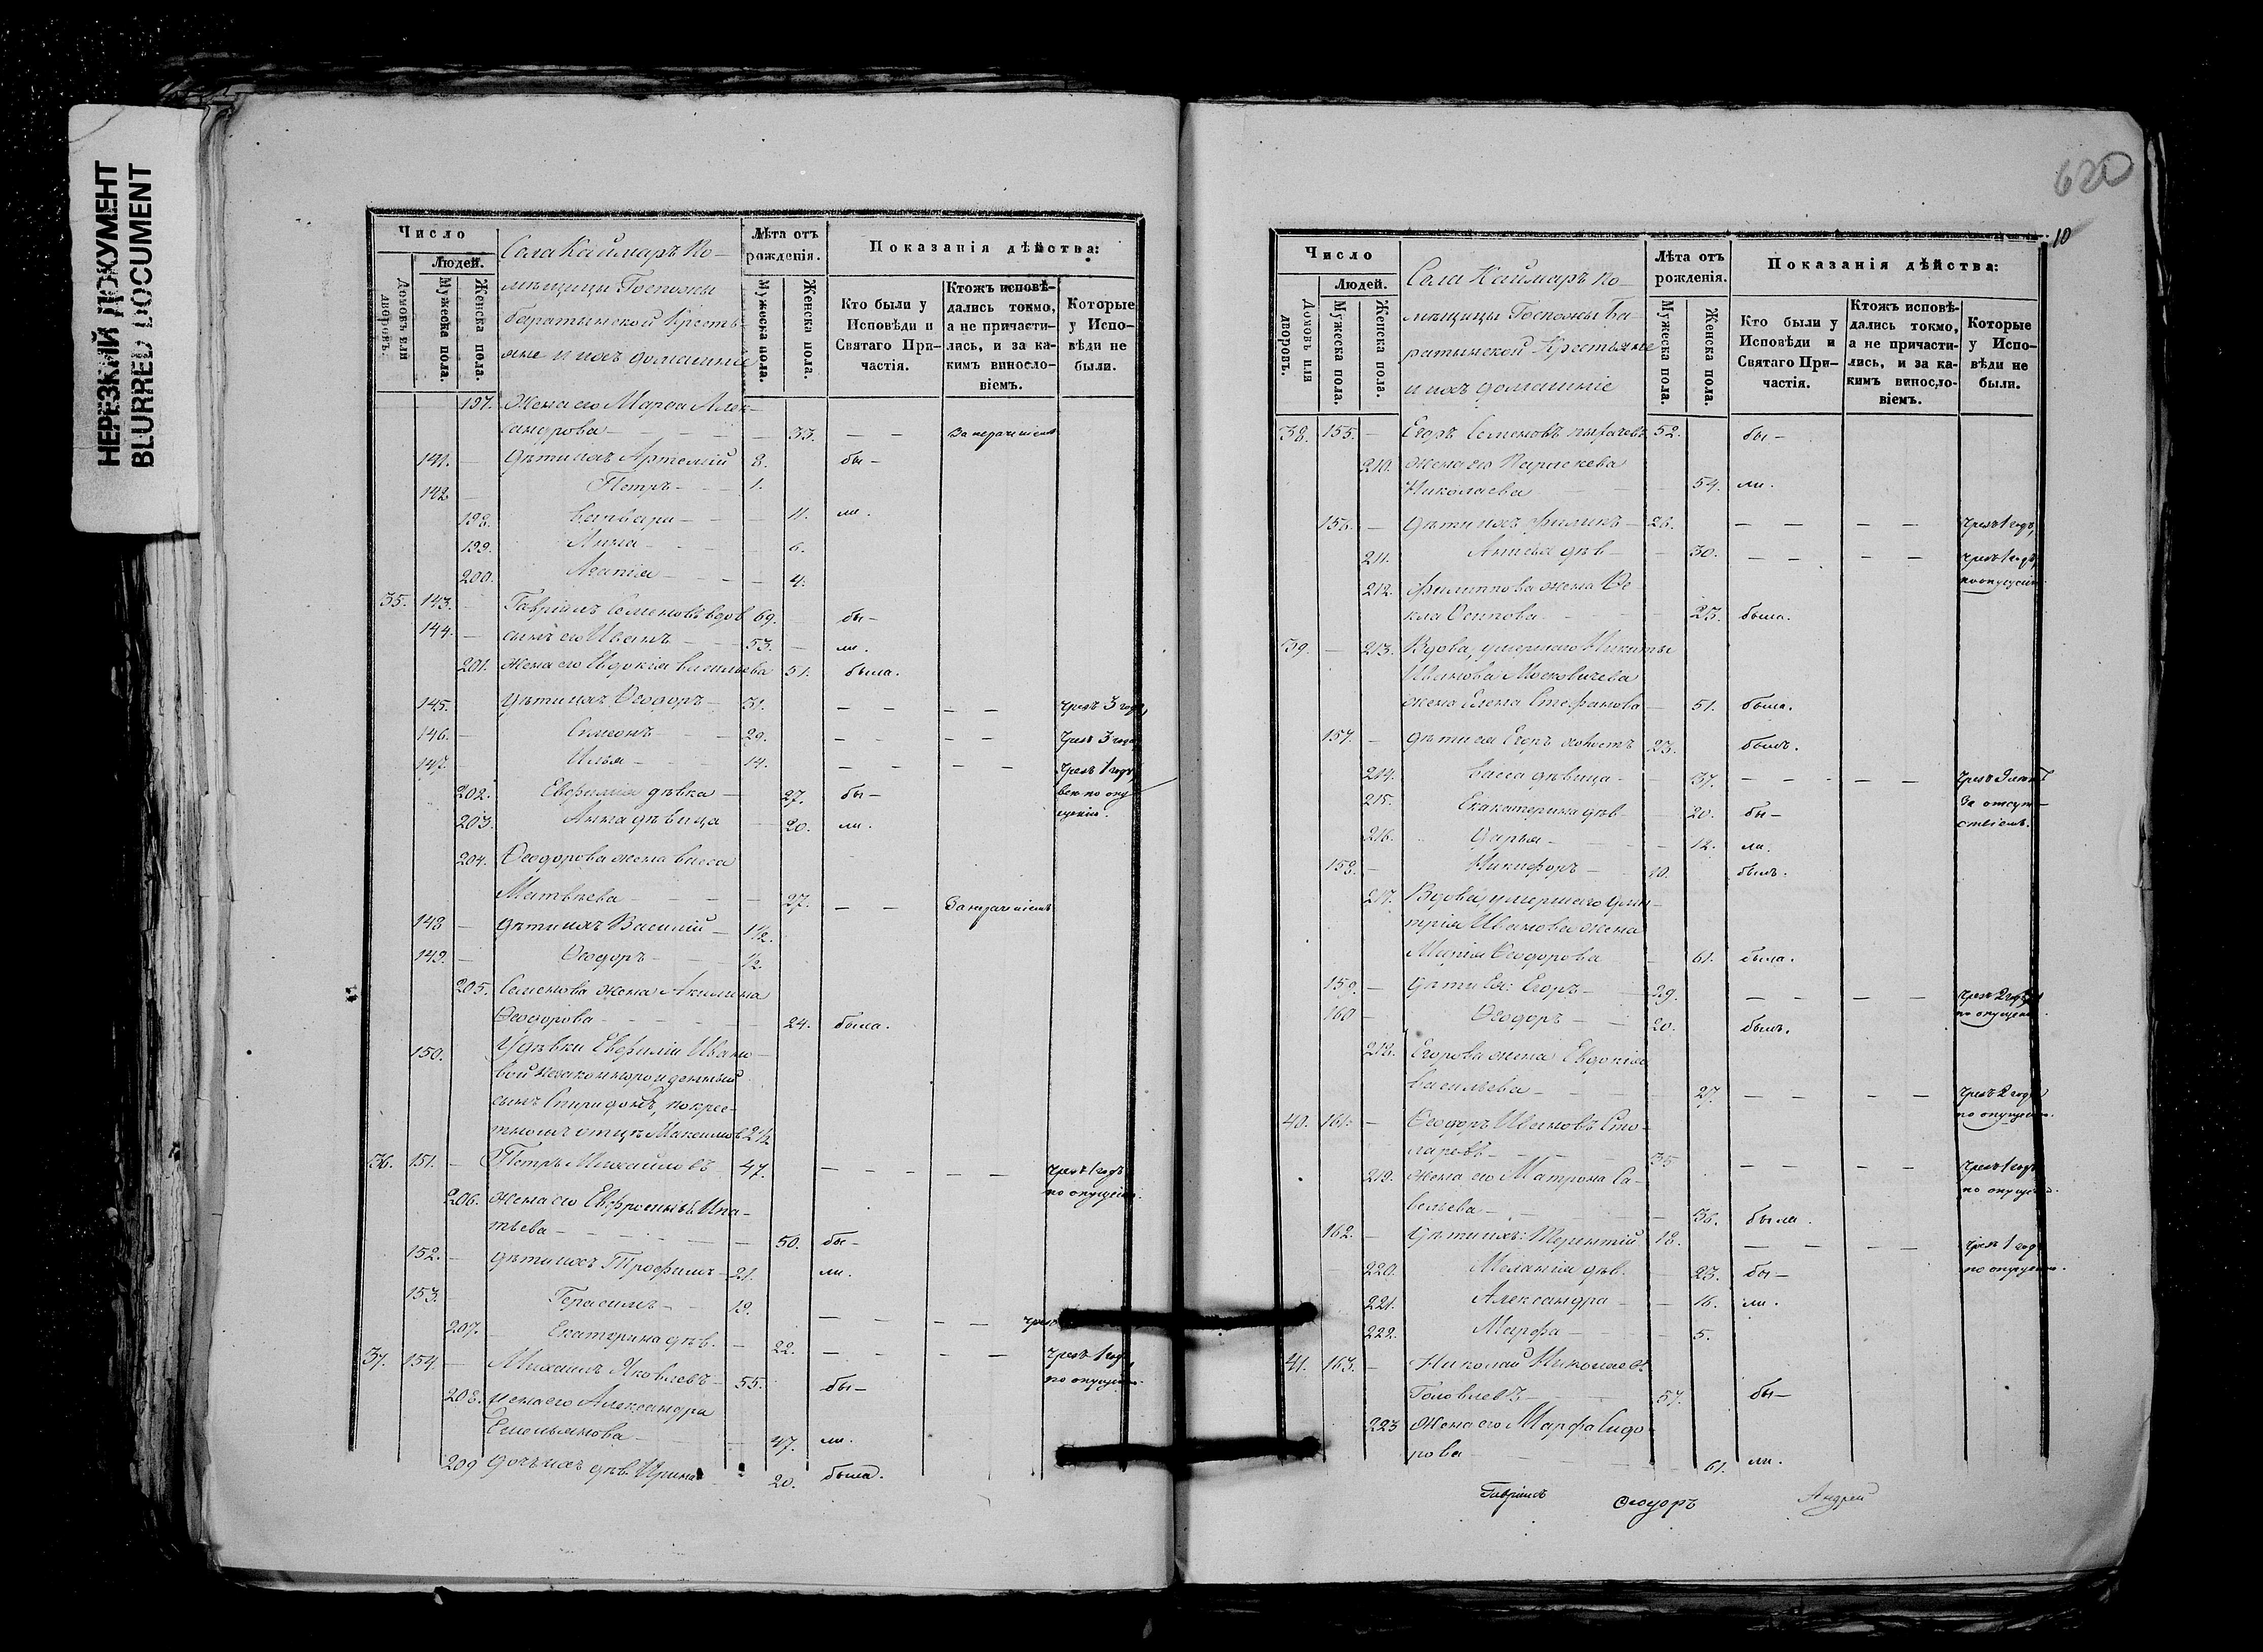 НЕРЕЗКИЙ ДОКУМЕНТ
BLURRED DOCUMENT
Число
Людей.
Домовъ или дворовъ.
Мужеска пола.
Женска пола.
Села Каймаръ По-
мѣщицы Госпожи
Баратынской Кресть-
яне и ихъ домашніе
Лѣта отъ рожденія.
Мужеска пола.
Женска пола.
Показанія дѣйства:
Кто были у Исповѣди и Святаго Причастія.
Ктожъ исповѣдались токмо, а не причастились, и за какимъ винословіемъ.
Которые у Исповѣди не были.
197. Жена его Марѳа Алек-
сандрова — 33. — —
141. — Дѣти ихъ Артемій 8. бы-
142. — Петръ — 1.
198. Варвара — 11. ли.
199. Анна — 6.
200. Агапія — 4.
35. 143. — Гавріилъ Семеновъ вдов 69. бы-
144. — сынъ его Иванъ — 53. — ли.
201. Жена его Евдокія Васильева 51. была.
145. — Дѣти ихъ Ѳеодоръ — 31. — — — — чрезъ 3 года,
146. — Симеонъ — 29. — — — — чрезъ 3 года
147. — Илья — 14. — — — — чрезъ 1 годъ
202. Евфимія дѣвка — 27. бы- всѣ по опу-
203. Анна дѣвица — 20. ли. щенію.
204. Ѳеодорова жена Васса
Матвѣева — 27. — —
148 — Дѣти ихъ Василій — 1½.
149. — Ѳеодоръ — ½.
205. Семенова жена Акилина
Ѳеодорова — 24. была.
150. У дѣвки Евфиміи Ивано-
вой незаконнорожденный
сынъ Спиридонъ, по крес-
тномъ отцѣ Максимовъ 2½
36. 151. — Петръ Михайловъ 47. — — — — чрезъ 1 годъ
по опущенію.
206. Жена его Евфросинья Ипа-
тьева — 50. бы-
152. — Дѣти ихъ Трофимъ — 21. ли.
153. — Герасимъ — 19. — — — — чрезъ
207. Екатерина дѣв. — 22. — — — — чрезъ 1 годъ,
37. 154 — Михаилъ Яковлевъ — 55. бы- по опущенію.
208. Жена его Александра
Емельянова — 47. ли.
209 Дочь ихъ дѣв. Ирина 20. была.
620
10
Число
Людей.
Домовъ или дворовъ.
Мужеска пола.
Женска пола.
Села Каймаръ По-
мѣщицы Госпожи Ба-
ратынской Крестьяне
и ихъ домашніе
Лѣта отъ рожденія.
Мужеска пола.
Женска пола.
Показанія дѣйства:
Кто были у Исповѣди и Святаго Причастія.
Ктожъ исповѣдались токмо, а не причастились, и за какимъ винословіемъ.
Которые у Исповѣди не были.
38. 155. — Егоръ Семеновъ 52. бы-
210. Жена его Параскева
Николаева — 54. ли.
156. — Дѣти ихъ Филипъ — 26. — — — — чрезъ 1 годъ,
211. Анисья дѣв — 30. — — — — чрезъ 1 годъ,
по опущенію.
212. Филиппова жена Ѳе-
кла Осипова — 23. была.
39. — 213. Вдова, умершаго Никиты
Иванова Московичева
жена Елена Стефанова — 51. была.
157. — Дѣти ея Егоръ холостъ 23. былъ.
214. Васса дѣвица — 37. — — — — чрезъ 9 лѣтъ
215. Екакатерина дѣв — 20. бы- За отсут-
216. Дарья — 12. ли. ствіемъ.
158. — Никифоръ — 10. былъ.
217. Вдова умершаго Дми-
трія Иванова жена
Марія Ѳеодорова 61. была.
159. — Дѣти Ея: Егоръ — 29. — — — — чрезъ 2 года
по опущенію.
160 — Ѳеодоръ — 20. былъ.
218. Егорова жена Евдокія
Васильева — 27. — — — — чрезъ 2 года
по опущенію.
40. 161. — Ѳеодоръ Ивановъ Сто-
ляровъ — 35 — — — — чрезъ 1 годъ
по опущенію.
219. Жена его Матрона Са-
вельева — 38. была.
162. — Дѣти ихъ: Терентій 18. — — — — чрезъ 1 годъ
по опущенію.
220. Меланія дѣв. — 23. бы-
221. Александра — 16. ли.
222. Марфа — 5.
41. 163. — Николай Николаевъ
Головлевъ — 57. бы-
223 Жена его Марфа Сидо-
рова — 61. ли.
Гавріилъ Ѳеодоръ Андрей